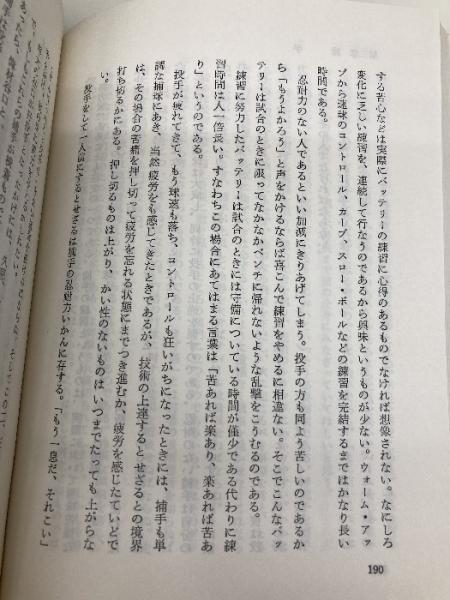 する苦心などは実際にバッテリーの練習に心得のあるものでなければ想像されない。なにしろ
変化に乏しい練習を、連続して行なうのであるから興味というものが少ない。ウォーム・アッ
プから速球のコントロール、カーブ、スロー・ボールなどの練習を完結するまではかなり長い
時間である。
忍耐力のない人であるといい加減にきりあげてしまう。投手の方も同よう苦しいのであるか
ら「もうよかろう」と声をかけるならば喜こんで練習をやめるに相違ない。そこでこんなバッ
テリーは試合のときに限ってなかなかベンチに帰れないような乱撃をこうむるのである。
練習に努力したバッテリーは試合のときには守備についている時間が僅少である代わりに練
習時間は人一倍長い。すなわちこの場合にあてはまる言葉は「苦あれば楽あり、楽あれば苦あ
り」というのである。
投手が疲れてきて、もう球速も落ち、コントロールも狂いがちになったときには、捕手も単
調な捕球にあき、当然疲労をも感じてきたときであるが、技術の上達するとせざるとの境界
は、その場合の苦痛を押し切って疲労を忘れる状態にまでつき進むか、疲労を感じたていどで
打ち切るかにある。押し切るものは上がり、かい性のないものはいつまでたっても上がらな
い。
投手をして一人前にするとせざるは捕手の忍耐力いかんに存する。「もう一息だ、それこい」
190